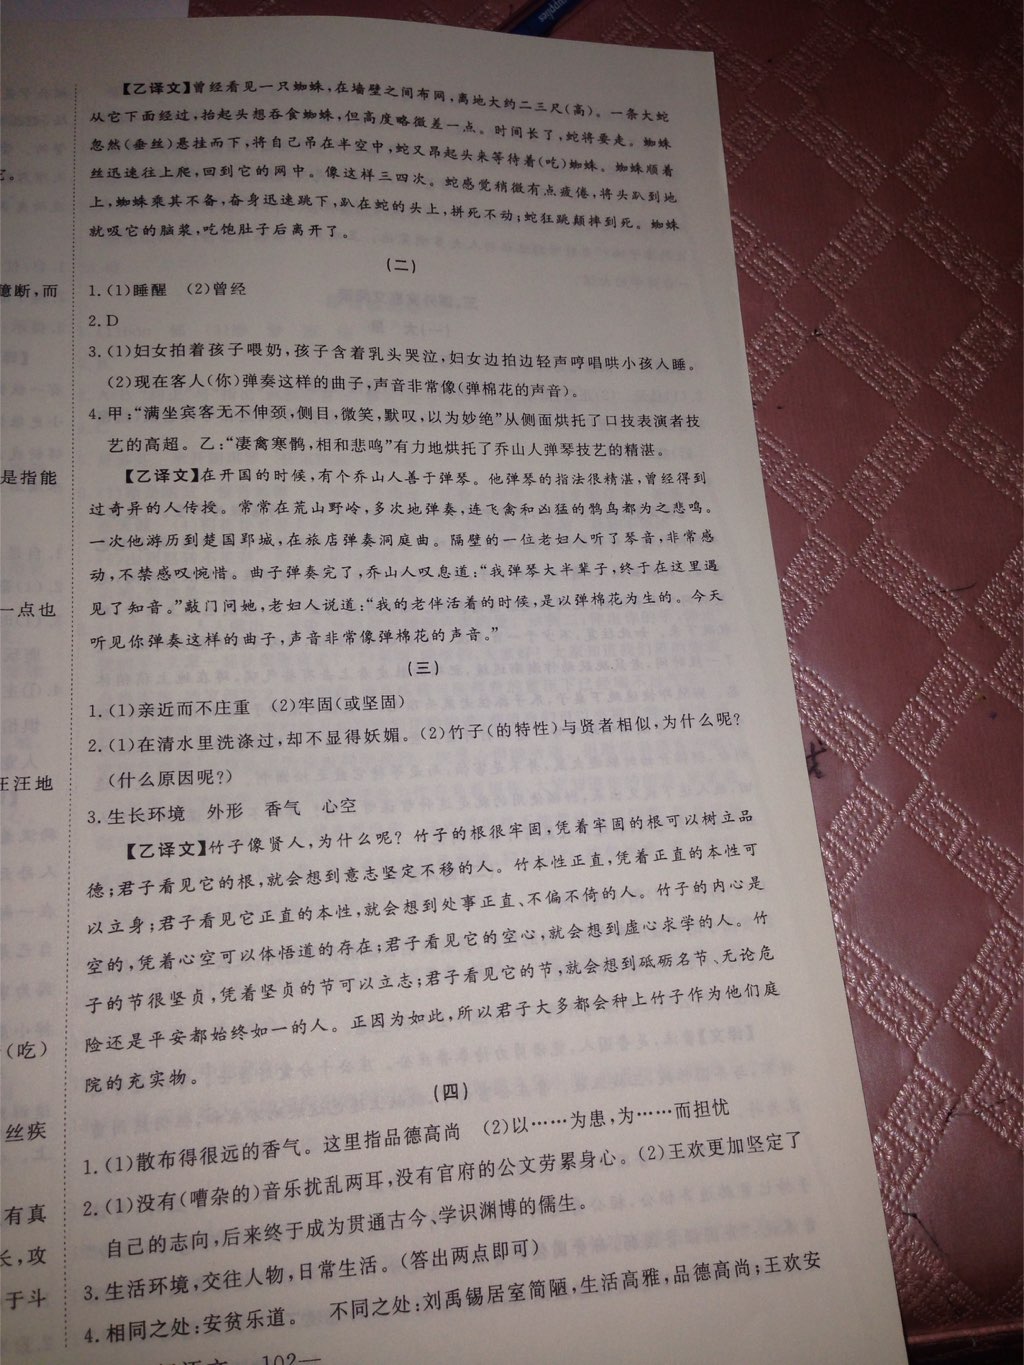 supplies
【乙译文】曾经看见一只蜘蛛,在墙壁之间布网,离地大约二三尺(高)。一条大蛇
从它下面经过,抬起头想吞食蜘蛛,但高度略微差一点。时间长了,蛇将要走。蜘蛛
忽然(垂丝)悬挂而下,将自己吊在半空中,蛇又昂起头来等待着(吃)蜘蛛。蜘蛛顺着
丝迅速往上爬,回到它的网中。像这样三四次。蛇感觉稍微有点疲倦,将头趴到地
上,蜘蛛乘其不备,奋身迅速跳下,趴在蛇的头上,拼死不动;蛇狂跳颠摔到死。蜘蛛
就吸它的脑浆,吃饱肚子后离开了。
(二)
1.(1)睡醒 (2)曾经
2.D
3.(1)妇女拍着孩子喂奶,孩子含着乳头哭泣,妇女边拍边轻声哼唱哄小孩入睡。
(2)现在客人(你)弹奏这样的曲子,声音非常像(弹棉花的声音)。
4.甲:“满坐宾客无不伸颈,侧目,微笑,默叹,以为妙绝”从侧面烘托了口技表演者技
艺的高超。乙:“凄禽寒鹘,相和悲鸣”有力地烘托了乔山人弹琴技艺的精湛。
【乙译文】在开国的时候,有个乔山人善于弹琴。他弹琴的指法很精湛,曾经得到
过奇异的人传授。常常在荒山野岭,多次地弹奏,连飞禽和凶猛的鹘鸟都为之悲鸣。
一次他游历到楚国郢城,在旅店弹奏洞庭曲。隔壁的一位老妇人听了琴音,非常感
动,不禁感叹惋惜。曲子弹奏完了,乔山人叹息道:“我弹琴大半辈子,终于在这里遇
见了知音。”敲门问她,老妇人说道:“我的老伴活着的时候,是以弹棉花为生的。今天
听见你弹奏这样的曲子,声音非常像弹棉花的声音。”
(三)
1.(1)亲近而不庄重 (2)牢固(或坚固)
2.(1)在清水里洗涤过,却不显得妖媚。(2)竹子(的特性)与贤者相似,为什么呢?
(什么原因呢?)
3.生长环境 外形 香气 心空
【乙译文】竹子像贤人,为什么呢?竹子的根很牢固,凭着牢固的根可以树立品
德;君子看见它的根,就会想到意志坚定不移的人。竹本性正直,凭着正直的本性可
以立身;君子看见它正直的本性,就会想到处事正直、不偏不倚的人。竹子的内心是
空的,凭着心空可以体悟道的存在;君子看见它的空心,就会想到虚心求学的人。竹
子的节很坚贞,凭着坚贞的节可以立志;君子看见它的节,就会想到砥砺名节、无论危
险还是平安都始终如一的人。正因为如此,所以君子大多都会种上竹子作为他们庭
院的充实物。
(四)
1.(1)散布得很远的香气。这里指品德高尚 (2)以……为患,为……而担忧
2.(1)没有(嘈杂的)音乐扰乱两耳,没有官府的公文劳累身心。(2)王欢更加坚定了
自己的志向,后来终于成为贯通古今、学识渊博的儒生。
3.生活环境,交往人物,日常生活。(答出两点即可)
4.相同之处:安贫乐道。 不同之处:刘禹锡居室简陋,生活高雅,品德高尚;王欢安
102—
臆断,而
是指能
一点也
汪汪地
(吃)
丝疾
有真
长,攻
于斗